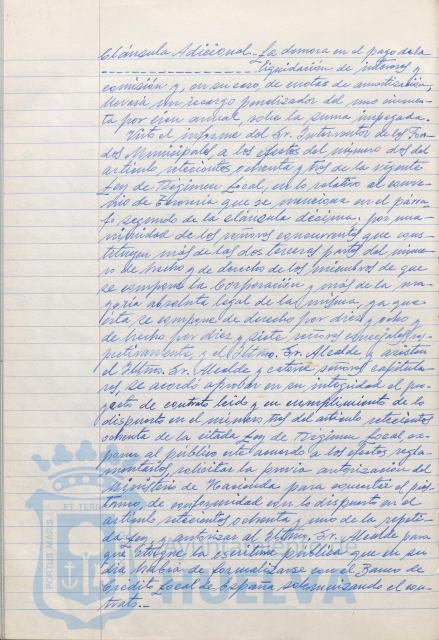 Cláusula Adicional.- La demora en el pago de la
liquidación de intereses y
comisión y, en su caso, de cuotas de amortización,
llevará un recargo penalizador del uno cincuen-
ta por cien anual, sobre la suma impagada.
Visto el informe del Sr. Interventor de los Fon-
dos Municipales, a los efectos del número dos del
artículo setecientos ochenta y tres de la vigente
Ley de Régimen Local, en lo relativo al conve-
nio de Tesorería que se menciona en el párra-
fo segundo de la cláusula décima; por una-
nimidad de los señores concurrentes que cons-
tituyen más de las dos terceras partes del núme-
ro de hecho y de derecho de los miembros de que
se compone la Corporación y más de la ma-
yoría absoluta legal de la misma, ya que
ésta se compone de derecho por diez y ocho y
de hecho por diez y siete señores concejales res-
pectivamente, y el Iltmo. Sr. Alcalde y asisten
el Iltmo. Sr. Alcalde y señores capitula-
res se acordó aprobar en su integridad el pro-
yecto de contrato leído y en cumplimiento de lo
dispuesto en el número tres del artículo setecientos
ochenta de la citada Ley de Régimen Local, ex-
poner al público este acuerdo a los efectos regla-
mentarios, solicitar la previa autorización del
Ministerio de Hacienda para concertar el prés-
tamo, de conformidad con lo dispuesto en el
artículo setecientos ochenta y uno de la repeti-
da Ley, y autorizar al Iltmo. Sr. Alcalde para
que otorgue la escritura pública que en su
día habrá de formalizarse con el Banco de
Crédito Local de España solemnizando el con-
trato.-
PORTUS MARIS
ET TERR
HUELVA